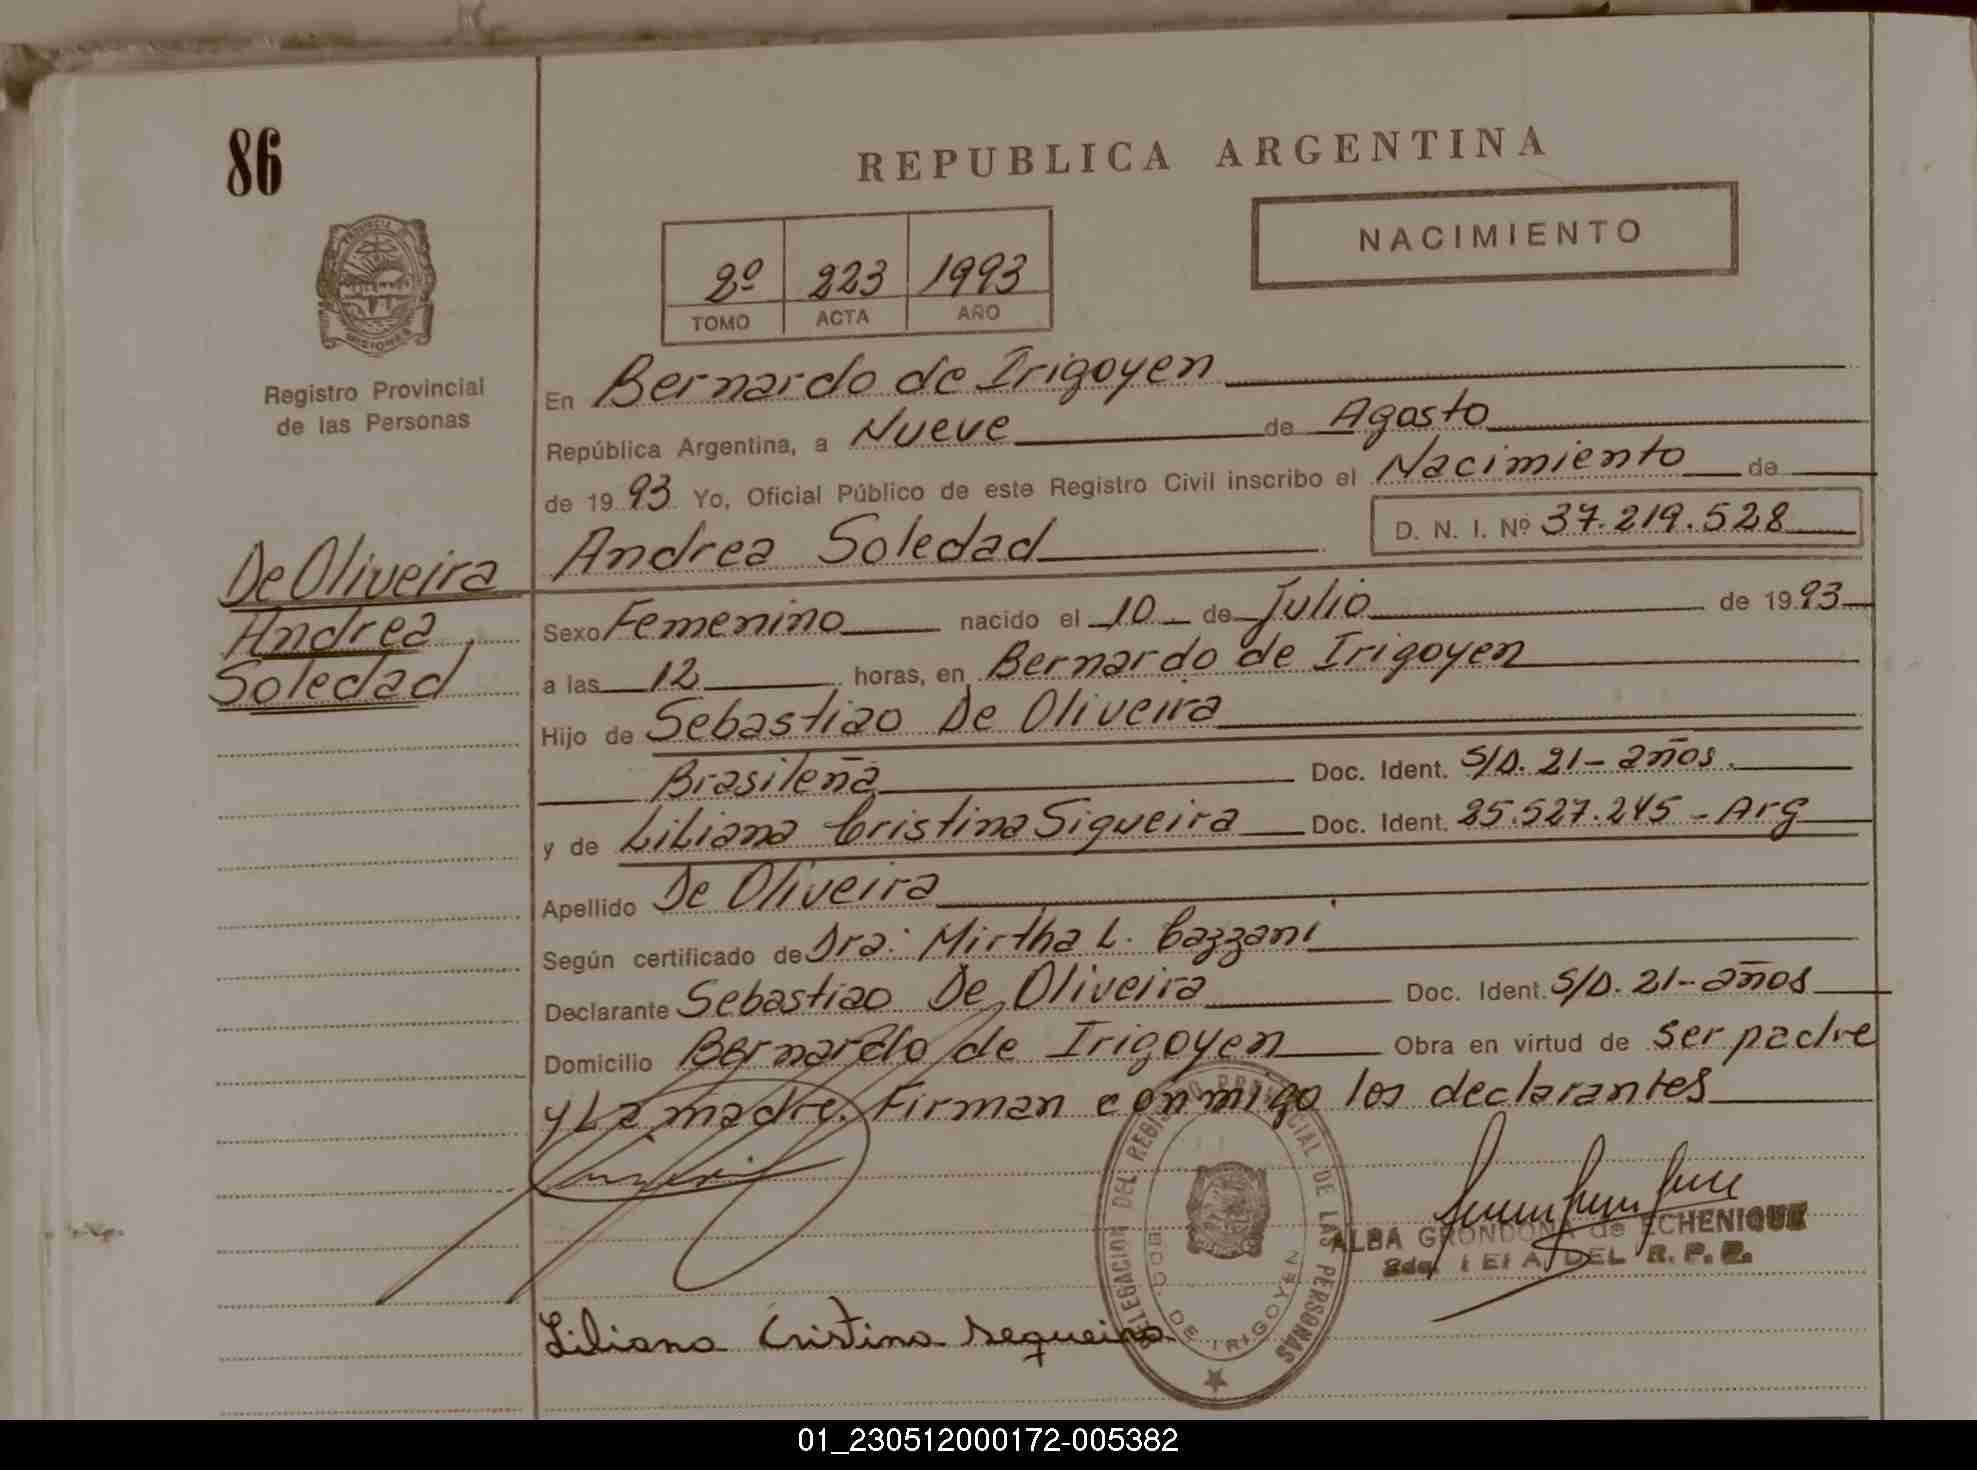 86
REPUBLICA ARGENTINA
NACIMIENTO
2º 223 1993
TOMO ACTA AÑO
PROVINCIA DE MISIONES
Registro Provincial
de las Personas
En Bernardo de Irigoyen
República Argentina, a Nueve de Agosto
de 1993 Yo, Oficial Público de este Registro Civil inscribo el Nacimiento de
Andrea Soledad D. N. I. Nº 37.219.528
De Oliveira
Andrea
Soledad
Sexo Femenino nacido el 10 de Julio de 1993
a las 12 horas, en Bernardo de Irigoyen
Hijo de Sebastiao De Oliveira
Brasileña Doc. Ident. S/D. 21- años.
y de Liliana Cristina Siqueira Doc. Ident. 25.527.245 - Arg
Apellido De Oliveira
Según certificado de Dra: Mirtha L. Cazzani
Declarante Sebastiao De Oliveira Doc. Ident. S/D. 21- años
Domicilio Bernardo de Irigoyen Obra en virtud de ser padre
y La madre. Firman conmigo los declarantes
DELEGACION DEL REGISTRO PROVINCIAL DE LAS PERSONAS
BDO. DE IRIGOYEN
ALBA GRONDONA de ECHENIQUE
DEL R. P. P.
Liliana Cristina Sequeira
01_230512000172-005382